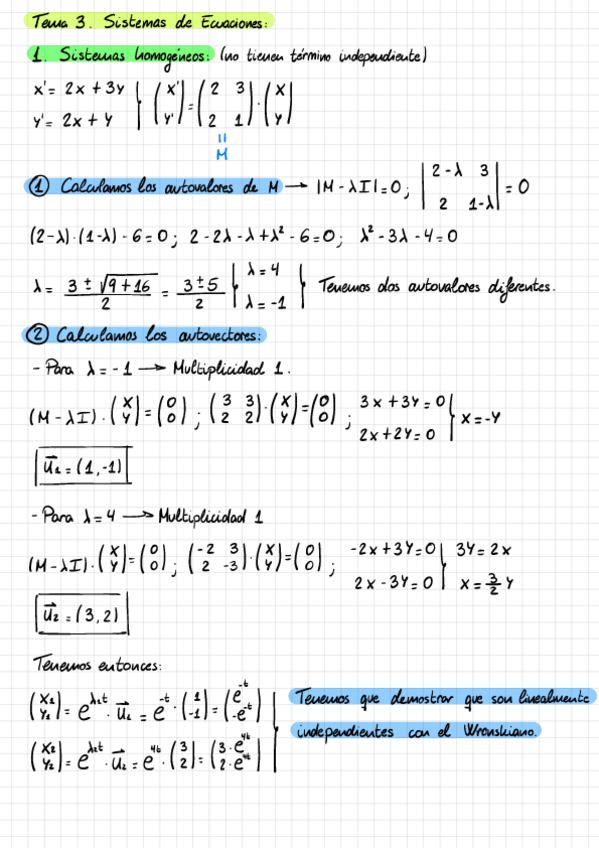 Tema 3. Sistemas de Ecuaciones:
1. Sistemas homogéneos: (no tienen término independiente)
x' = 2x + 3y } (x' y') = (2 3 2 1) · (x y)
y' = 2x + y
=
M
① Calculamos los autovalores de M → |M - λI| = 0; |2-λ 3 2 1-λ| = 0
(2-λ)·(1-λ) - 6 = 0; 2 - 2λ - λ + λ² - 6 = 0; λ² - 3λ - 4 = 0
λ = (3 ± √(9+16))/2 = (3 ± 5)/2 | λ = 4 λ = -1 } Tenemos dos autovalores diferentes.
② Calculamos los autovectores:
- Para λ = -1 → Multiplicidad 1.
(M - λI)·(x y) = (0 0); (3 3 2 2)·(x y) = (0 0); 3x + 3y = 0 2x + 2y = 0 } x = -y
u₁ = (1, -1)
- Para λ = 4 → Multiplicidad 1
(M - λI)·(x y) = (0 0); (-2 3 2 -3)·(x y) = (0 0); -2x + 3y = 0 2x - 3y = 0 | 3y = 2x x = 3/2 y
u₂ = (3, 2)
Tenemos entonces:
(x₁ y₁) = e^λ₁t · u₁ = e^-t · (1 -1) = (e^-t -e^-t)
(x₂ y₂) = e^λ₂t · u₂ = e^4t · (3 2) = (3·e^4t 2·e^4t)
Tenemos que demostrar que son linealmente
independientes con el Wronskiano.